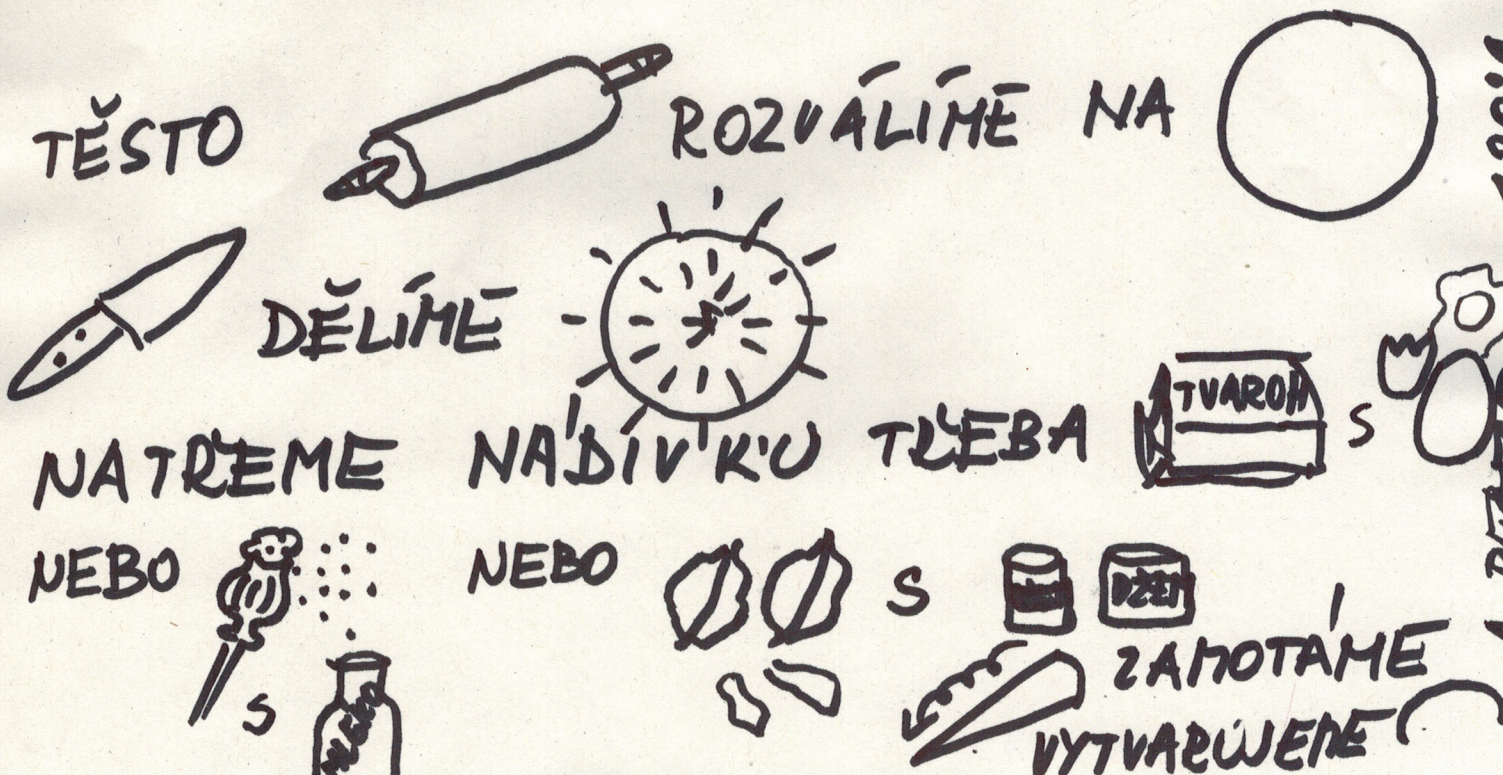 TĚSTO ROZVÁLÍME NA
DĚLÍME
NATŘEME NÁDIVKU TŘEBA TVAROH S
NEBO NEBO S DŽEM
S ZAMOTÁME
VYTVARUJEME